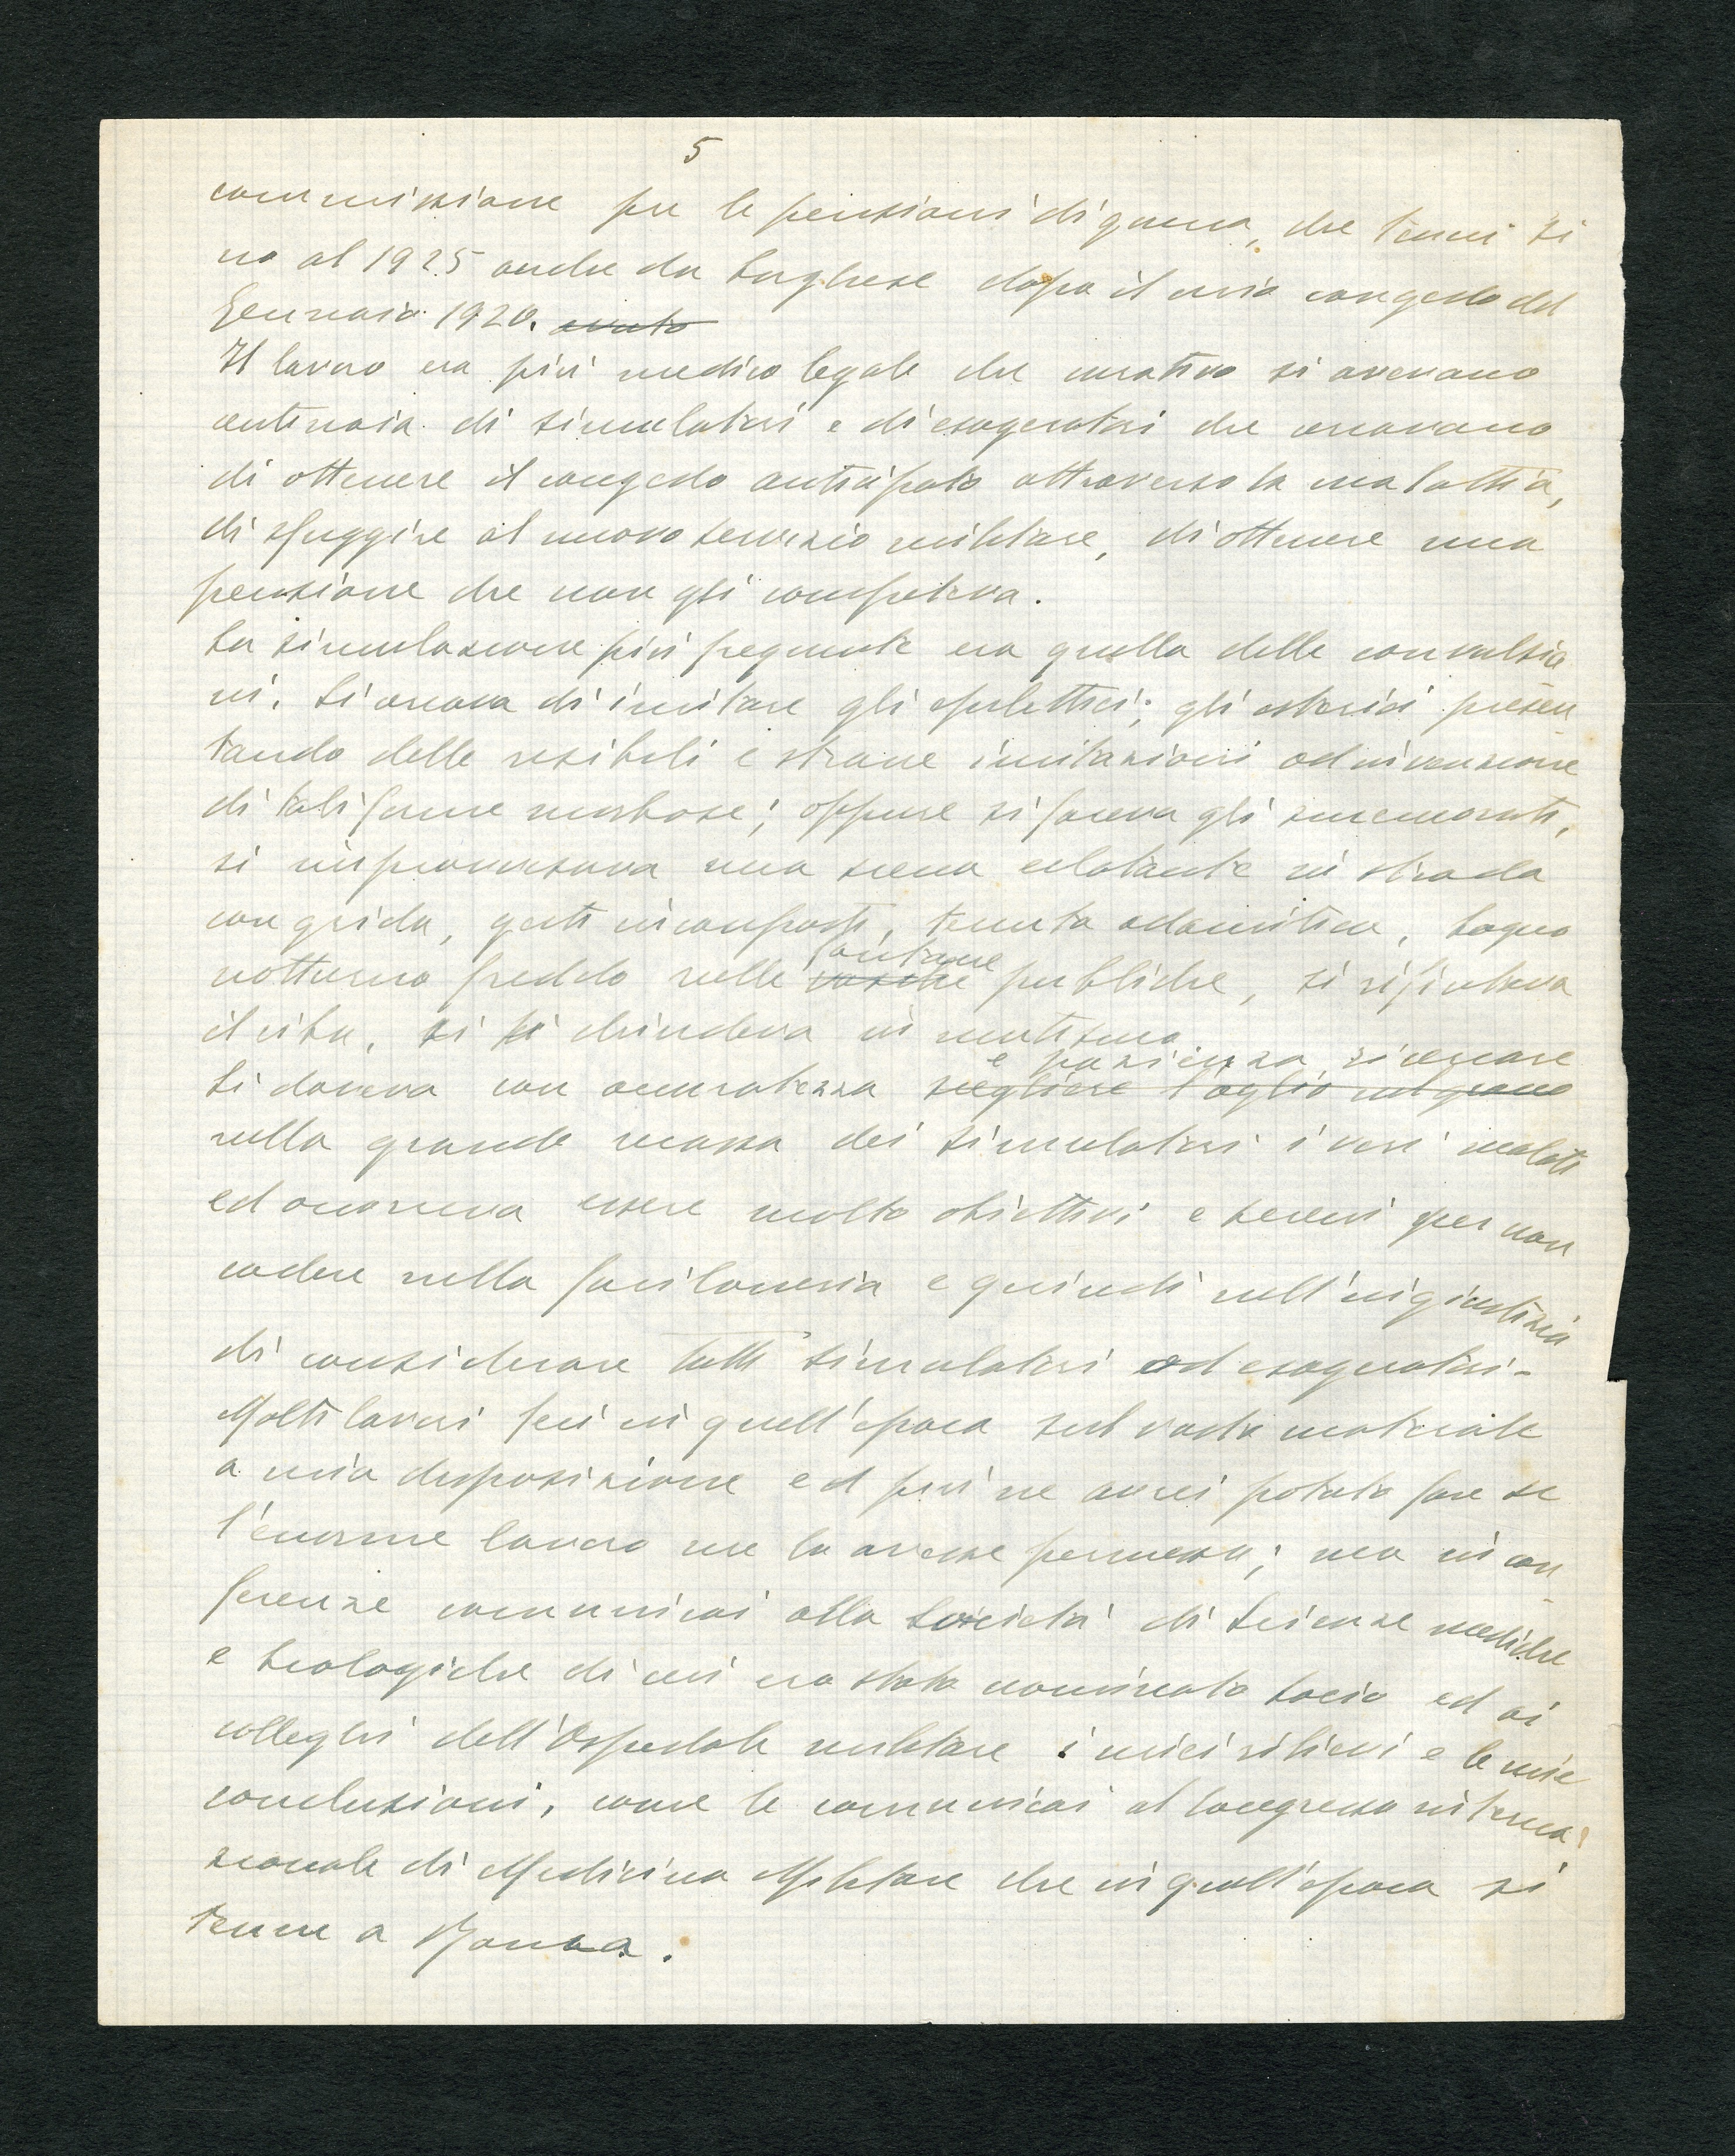 5
commissione per le pensioni di guerra, che tenni si
no al 1925 anche da borghese dopo il mio congedo del
Gennaio 1920. avuto
Il lavoro era più medico legale che curativo si avevano
centinaia di simulatori e di esageratori che cercavano
di ottenere il congedo anticipato attraverso la malattia,
di sfuggire al nuovo servizio militare, di ottenere una
pensione che non gli competeva.
La simulazione più frequente era quella delle convulsio
ni. Si cercava di imitare gli epilettici; gli isterici presen
tando delle risibili e strane imitazioni od invenzione
di tali forme morbose; oppure si faceva gli smemorati,
si improvvisava una scena eclatante in strada
con grida, gesti incomposti, tenuta adamitica, bagno
notturno freddo nelle vasche fontane pubbliche, si rifiutava
il cibo, si si chiudeva in mutismo
Si doveva con accuratezza scegliere l'oglio nel grano e pazienza ricercare
nella grande massa dei simulatori i veri malati
ed occorreva essere molto obiettivi e sereni per non
cadere nella faciloneria e quindi nell'ingiustizia
di considerare tutti simulatori od esageratori.
Molti lavori feci in quell'epoca sul vasto materiale
a mia disposizione ed più ne avrei potuto fare se
l'enorme lavoro me lo avesse permesso; ma in con
ferenze comunicai alla Società di Scienze mediche
e biologiche di cui ero stato nominato socio ed ai
colleghi dell'Ospedale militare i miei rilievi e le mie
conclusioni, come le comunicai al Congresso interna
zionale di Medicina Militare che in quell'epoca si
tenne a Roma.